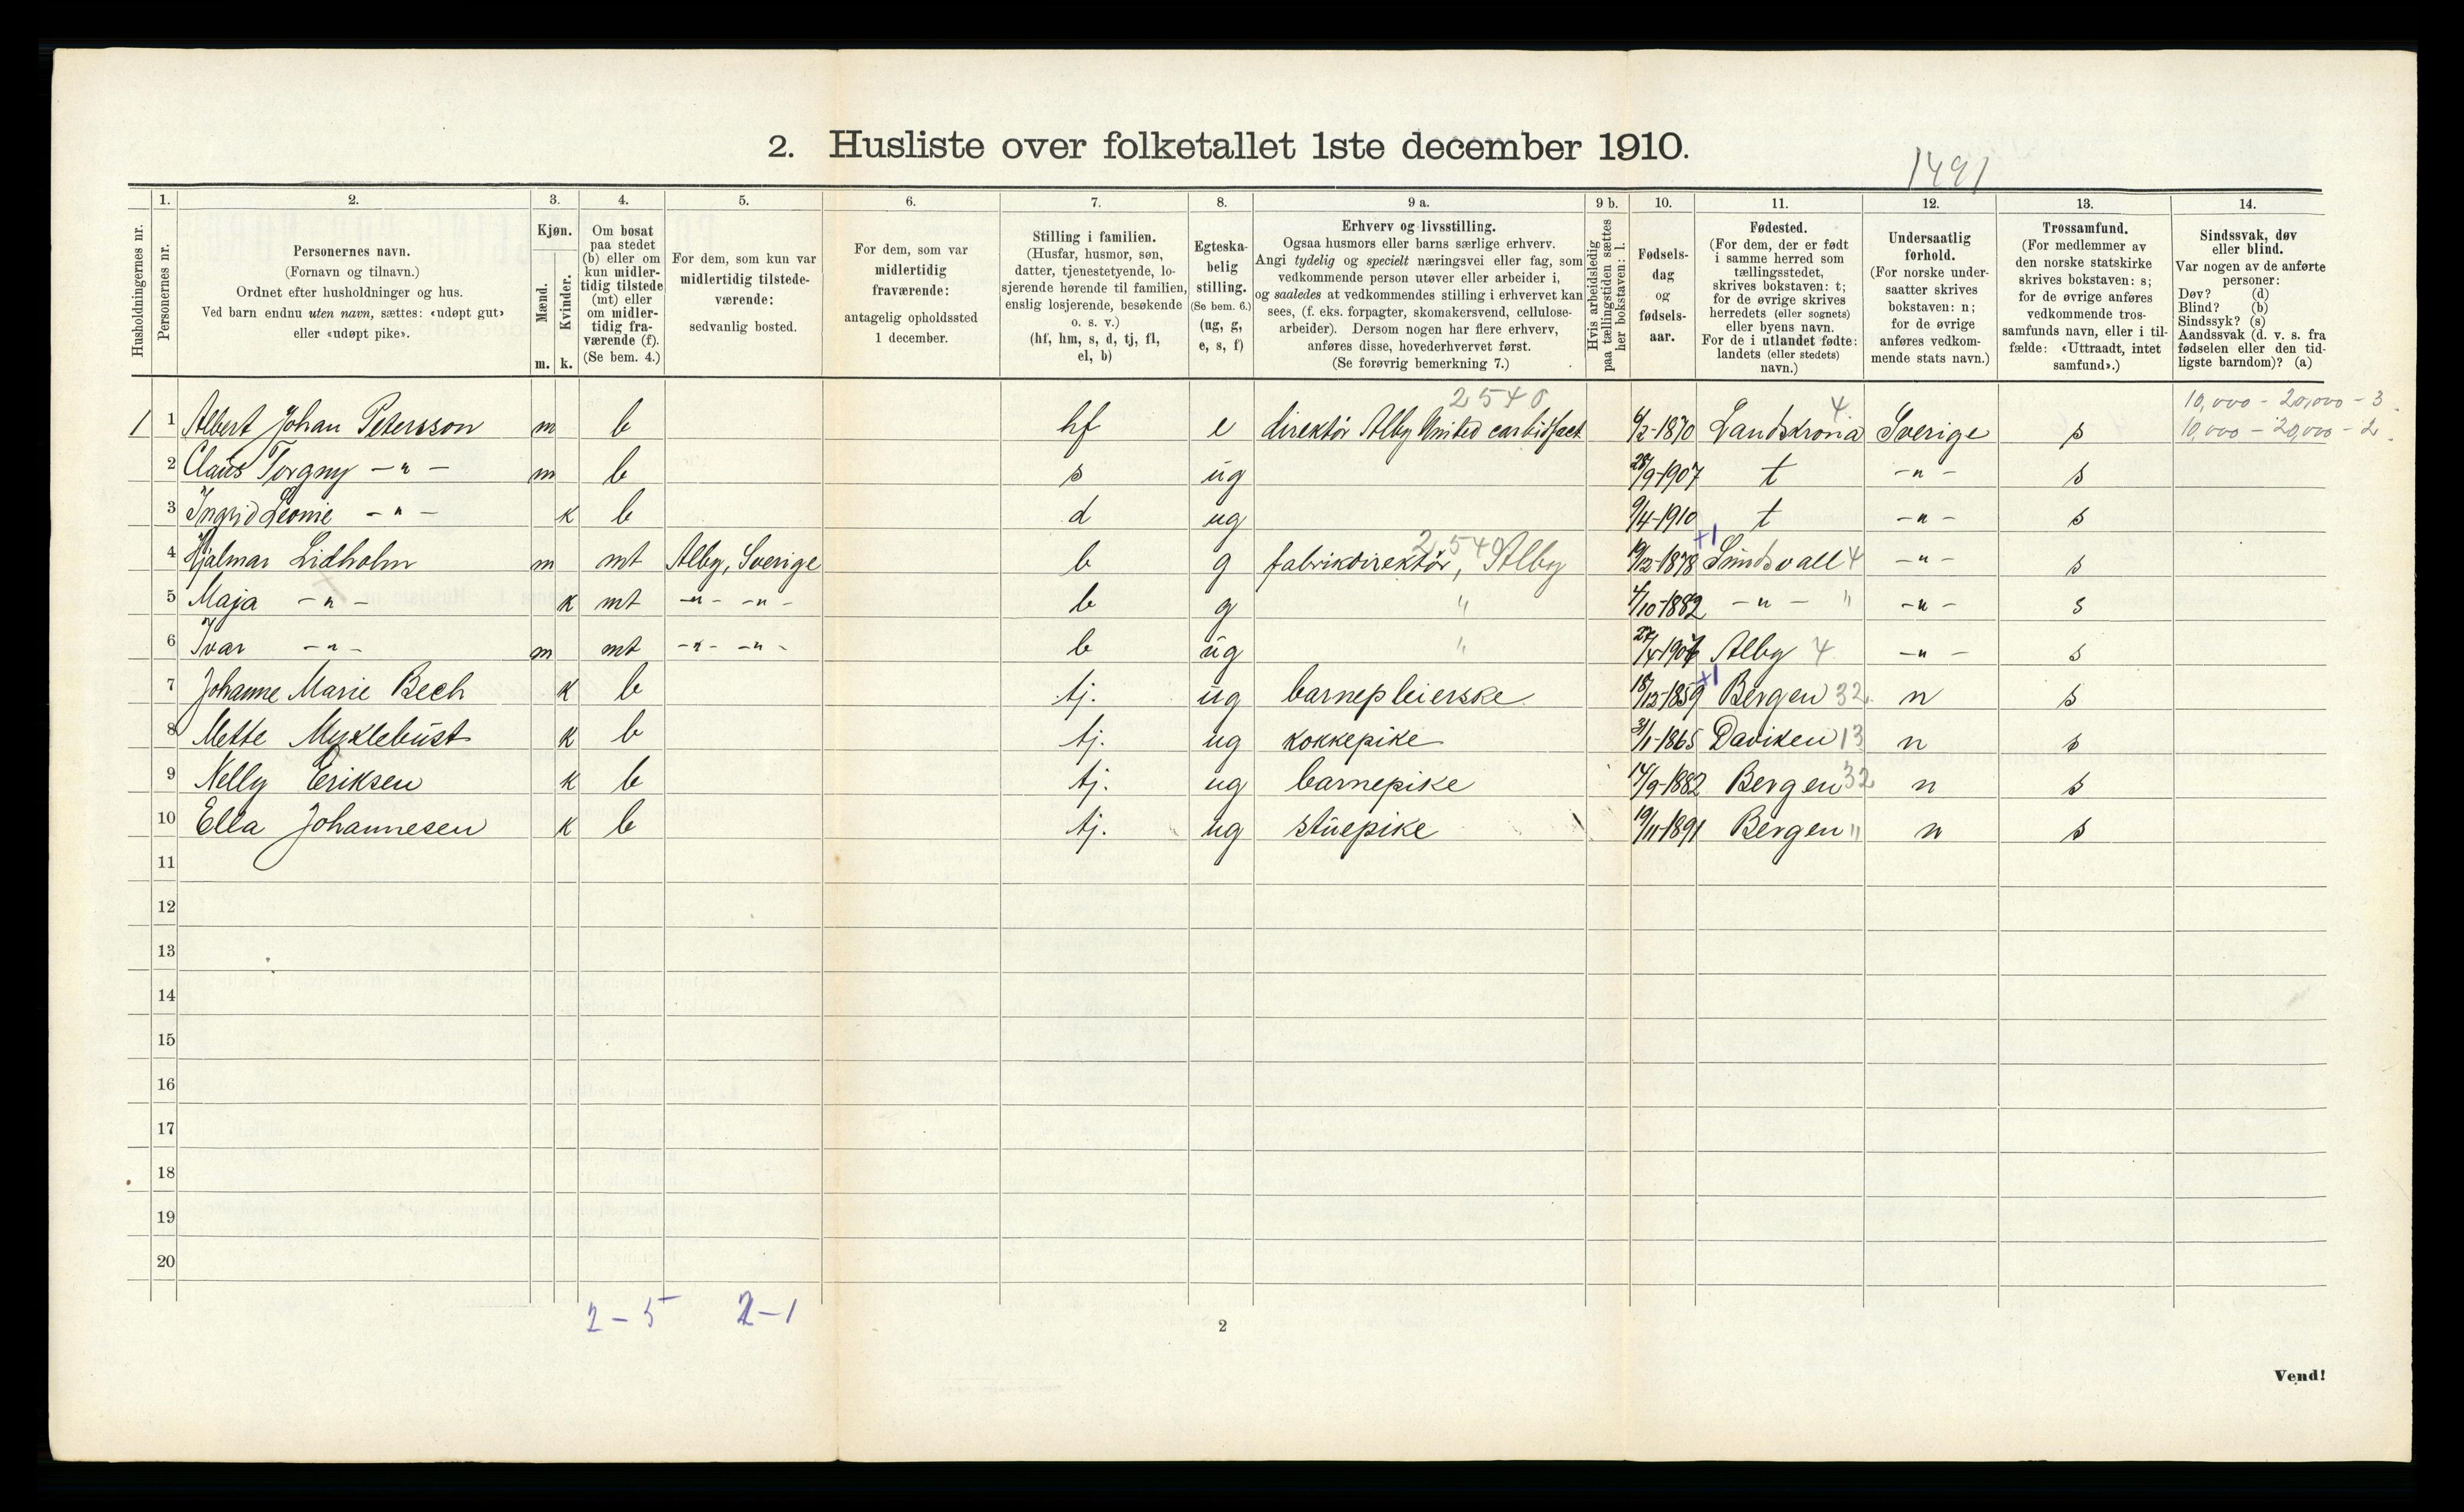 2. Husliste over folketallet 1ste december 1910.
1491
1. 2. 3. 4. 5. 6. 7. 8. 9 a. 9 b. 10. 11. 12. 13. 14.
Husholdningernes nr.
Personernes nr.
Personernes navn.
(Fornavn og tilnavn.)
Ordnet efter husholdninger og hus.
Ved barn endnu uten navn, sættes: «udøpt gut»
eller «udøpt pike».
Kjøn.
Mænd.
Kvinder.
m. k.
Om bosat
paa stedet
(b) eller om
kun midler-
tidig tilstede
(mt) eller
om midler-
tidig fra-
værende (f).
(Se bem. 4.)
For dem, som kun var
midlertidig tilstede-
værende:
sedvanlig bosted.
For dem, som var
midlertidig
fraværende:
antagelig opholdssted
1 december.
Stilling i familien.
(Husfar, husmor, søn,
datter, tjenestetyende, lo-
sjerende hørende til familien,
enslig losjerende, besøkende
o. s. v.)
(hf, hm, s, d, tj, fl,
el, b)
Egteska-
belig
stilling.
(Se bem. 6.)
(ug, g,
e, s, f)
Erhverv og livsstilling.
Ogsaa husmors eller barns særlige erhverv.
Angi tydelig og specielt næringsvei eller fag, som
vedkommende person utøver eller arbeider i,
og saaledes at vedkommendes stilling i erhvervet kan
sees, (f. eks. forpagter, skomakersvend, cellulose-
arbeider). Dersom nogen har flere erhverv,
anføres disse, hovederhvervet først.
(Se forøvrig bemerkning 7.)
Hvis arbeidsledig
paa tællingstiden sættes
her bokstaven: l.
Fødsels-
dag
og
fødsels-
aar.
Fødested.
(For dem, der er født
i samme herred som
tællingsstedet,
skrives bokstaven: t;
for de øvrige skrives
herredets (eller sognets)
eller byens navn.
For de i utlandet fødte:
landets (eller stedets)
navn.)
Undersaatlig
forhold.
(For norske under-
saatter skrives
bokstaven: n;
for de øvrige
anføres vedkom-
mende stats navn.)
Trossamfund.
(For medlemmer av
den norske statskirke
skrives bokstaven: s;
for de øvrige anføres
vedkommende tros-
samfunds navn, eller i til-
fælde: «Uttraadt, intet
samfund».)
Sindssvak, døv
eller blind.
Var nogen av de anførte
personer:
Døv? (d)
Blind? (b)
Sindssyk? (s)
Aandssvak (d. v. s. fra
fødselen eller den tid-
ligste barndom)? (a)
2540 4 10,000 - 20,000 - 3
1 1 Albert Johan Petersson m b hf e direktör Alby United carbidfact 6/2-1870 Landskrona Sverige s 10,000 - 20,000 - 2
2 Claus Torgny -"- m b s ug 28/9-1907 t -"- s
3 Ingrid Leonie -"- k b d ug 9/4-1910 t -"- s
2540 +1
4 Hjalmar Lidholm m mt Alby, Sverige b g fabrikdirektör, Alby 19/12-1878 Sundsvall 4 -"- s
5 Maja -"- k mt -"- -"- b g " 4/10-1882 -"- " -"- s
6 Ivar -"- m mt -"- -"- b ug " 27/4 Alby 4 -"- s
+1
7 Johanne Marie Bech k b tj. ug barnepleierske 18/12-1859 Bergen 32 n s
8 Mette Myklebust k b tj. ug kokkepike 31/1-1865 Daviken 13 n s
9 Nelly Eriksen k b tj. ug barnepike 14/9-1882 Bergen 32 n s
10 Ella Johannesen k b tj. ug stuepike 19/11-1891 Bergen " n s
11
12
13
14
15
16
17
18
19
20
2-5 2-1
2
Vend!